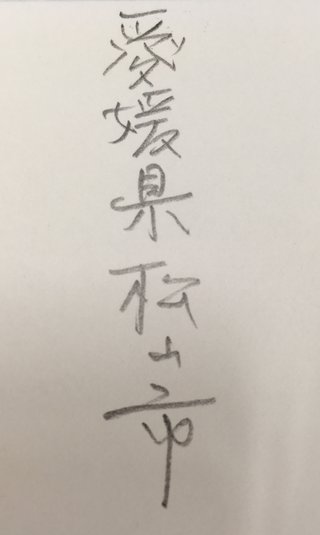 愛媛県松山市